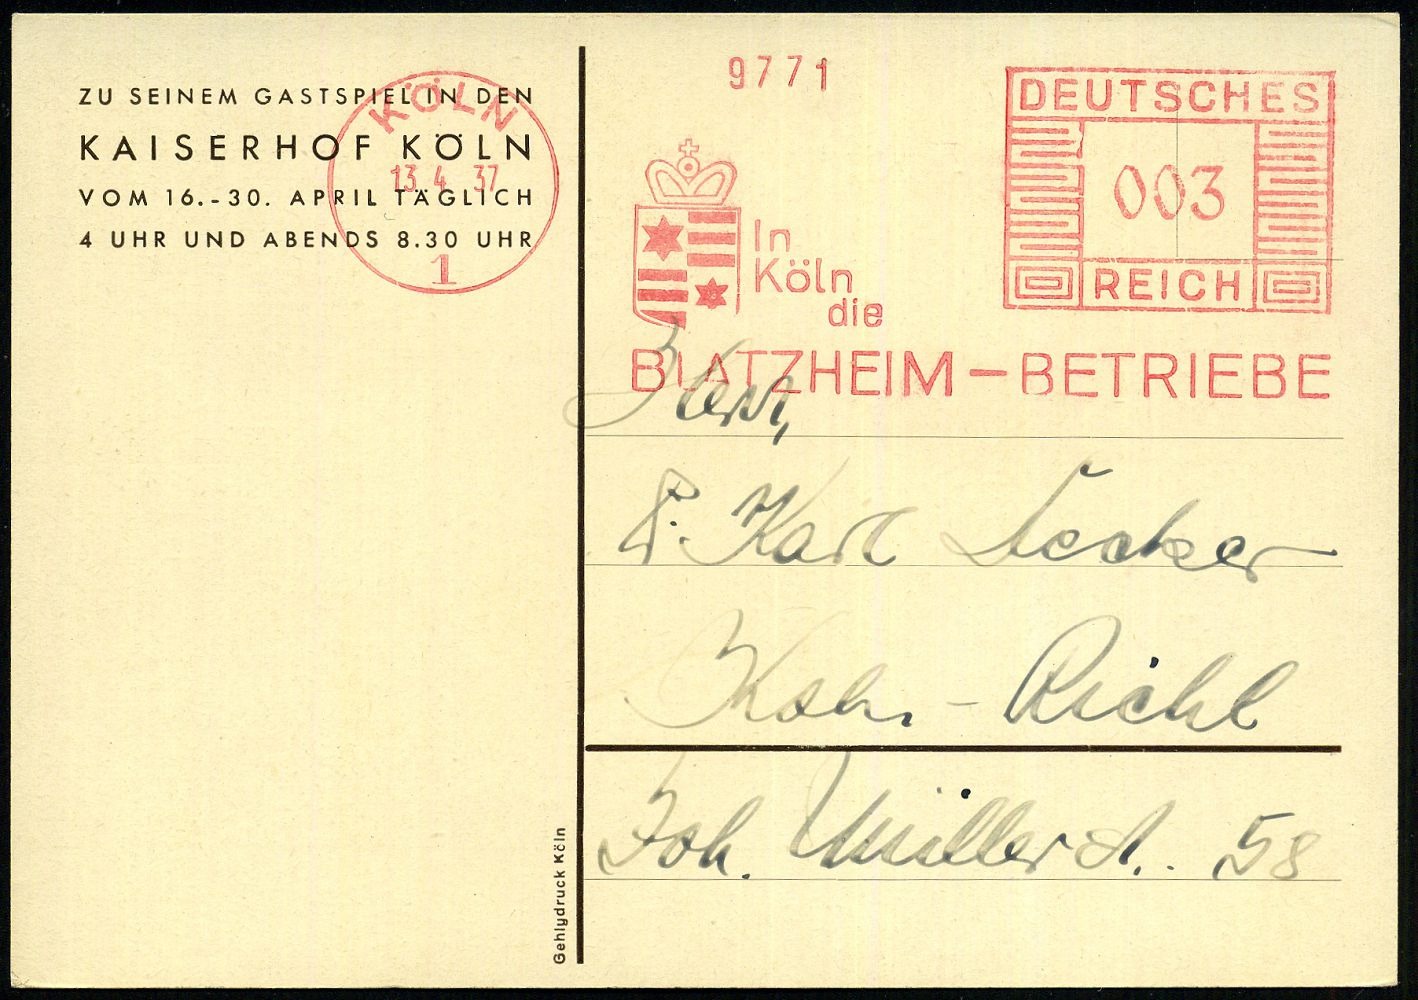 ZU SEINEM GASTSPIEL IN DEN
KAISERHOF KÖLN
VOM 16.-30. APRIL TÄGLICH
4 UHR UND ABENDS 8.30 UHR
KÖLN
13.4 37
1
9771
DEUTSCHES
003
REICH
In
Köln
die
BLATZHEIM-BETRIEBE
Herr,
Karl
Köln-Riehl
Joh. Müller St. 58
Gehlydruck Köln